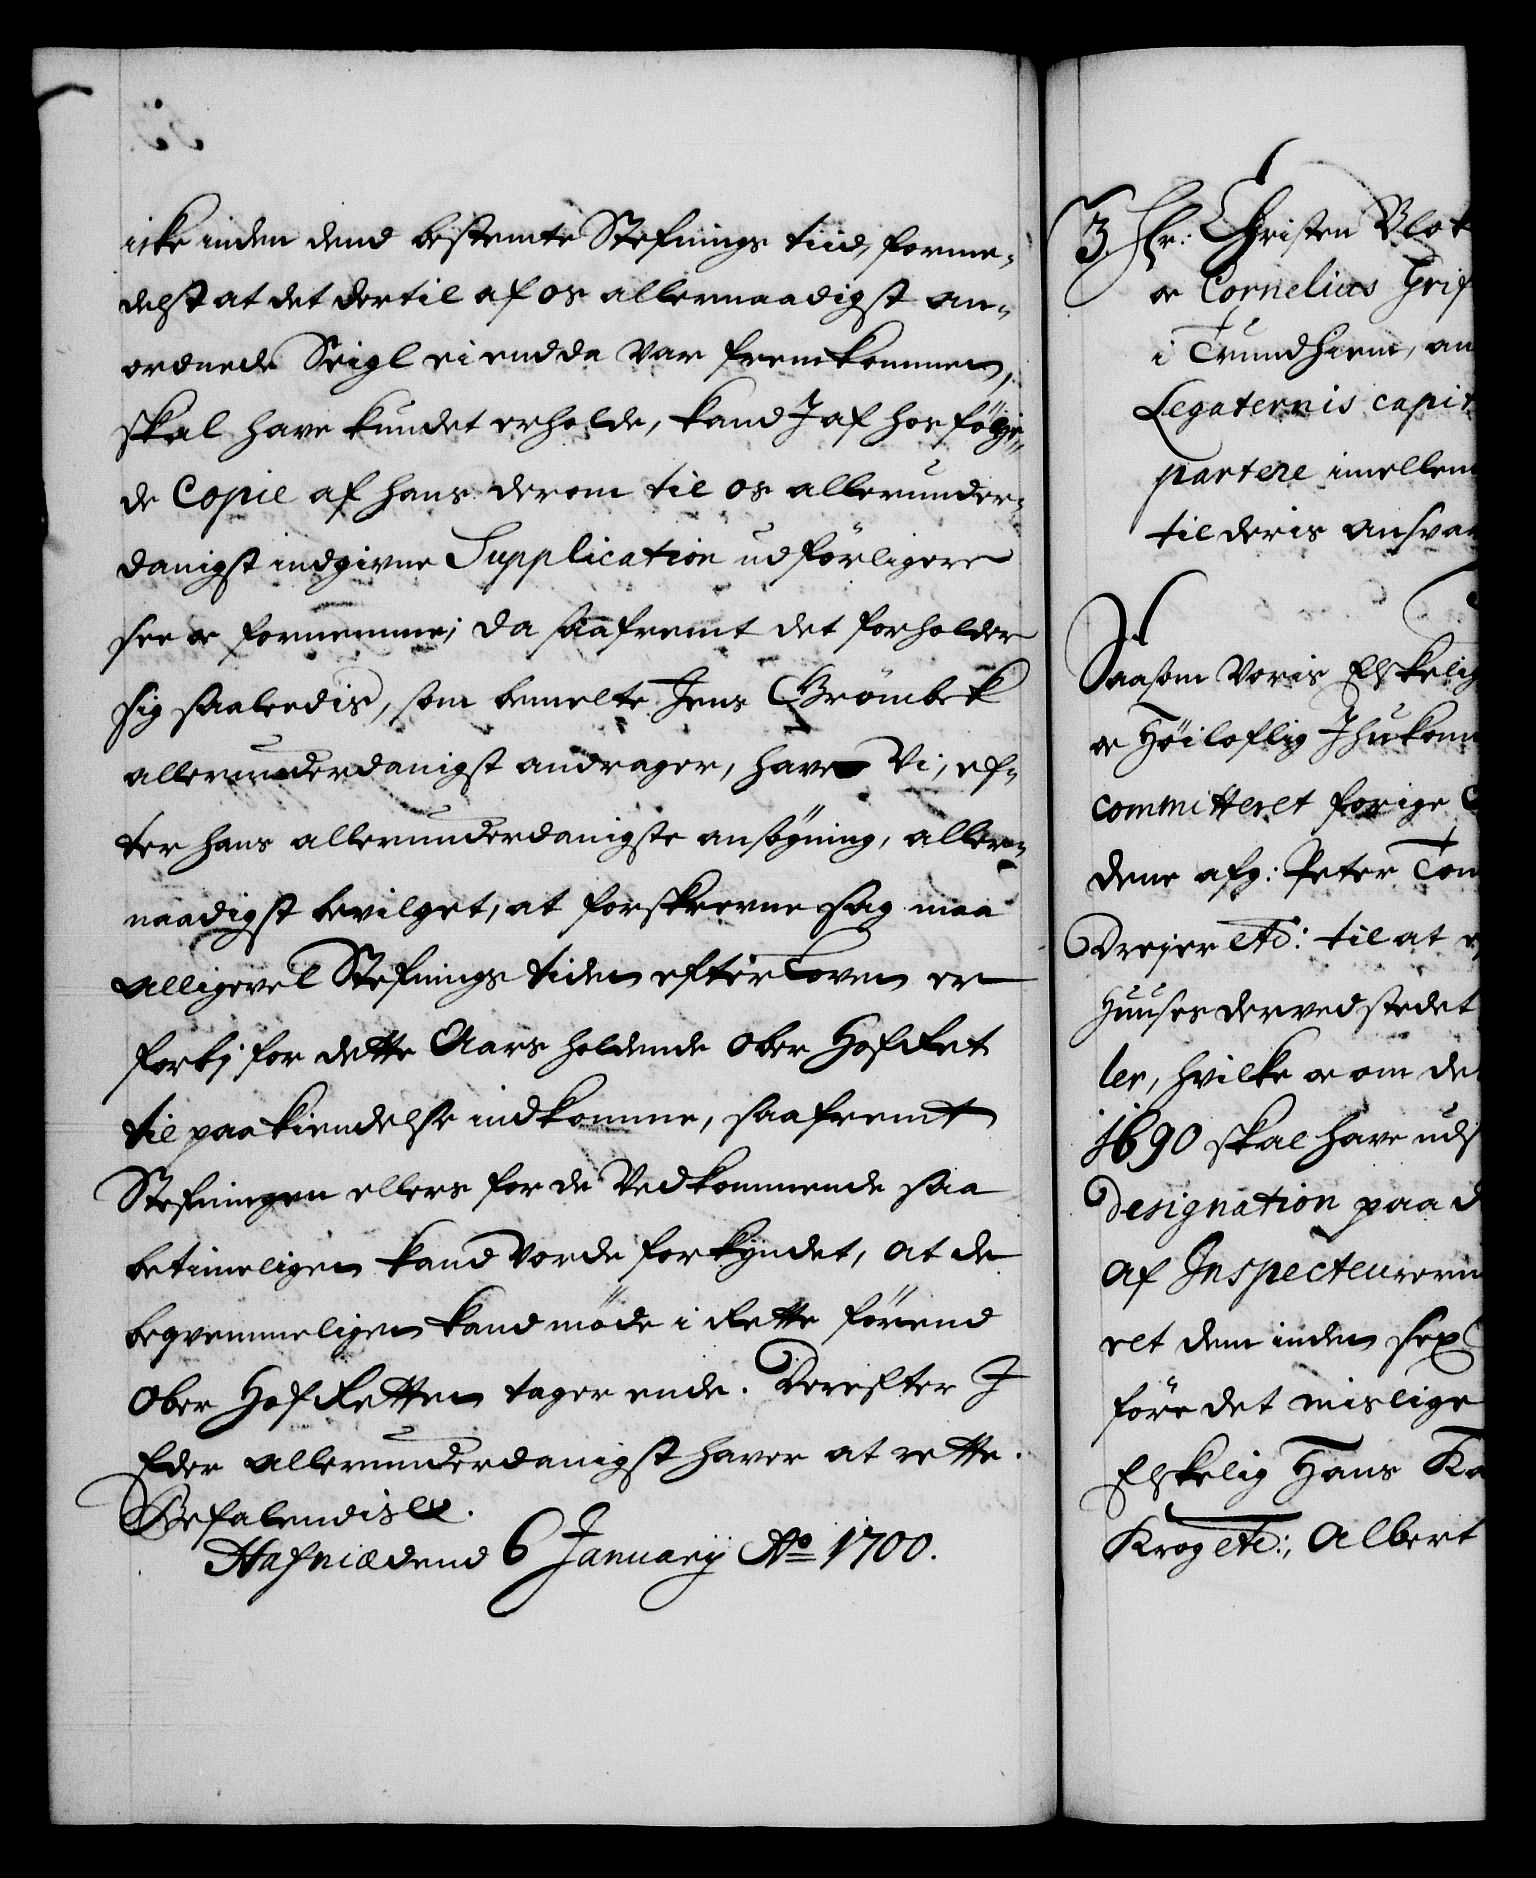 icke inden dend bestemte Stefnings tiid, forme-
delst at det dertil af os allernaadigst an-
ordnede Seigl ei endda var fremkommen,
skal have kundet erholde, kand I af hosfølgen-
de Copie af hans derom til os allerunder-
danigst indgivne Supplication udførligere
see oc fornemme; da saafremt det forholder
sig saaledis, som bemelte Jens Grömbek
allerunderdanigst andrager, have Vi, ef-
ter hans allerunderdanigste ansøgning, aller-
naadigst bevilget, at forskrevne sag maa
alligevel Stefnings tiden efter Loven er
forbj for dette Aars holdende Ober Hof Ret
til paakiendelse indkomme, saafremt
Stefningen ellers for de Vedkommende saa
betimeligen kand vorde forkyndet, at de
beqvemmeligen kand møde i Rette førend
Ober Hof Retten tager ende. Derefter I
Eder allerunderdanigst haver at rette.
Befalendis etc.
Hafniæ dend 6 Januarij Ao 1700.
3. Hr: Christen
oc Cornelius
i Trundhiem, an
Legaternis capit
partere imellem
til deris ansvar
Saasom Voris Elskelig
oc Høiloflig Ihukom
committeret forige
dene afg: Peter
Drejer etc: til at
Huuses derved stedet
ler, hvilke oc om de
1690 skal have uds
Designation paa d
af Inspecteurern
ret dem inden sex
føre det mislige
Elskelig Hans
Krog etc:, Albert